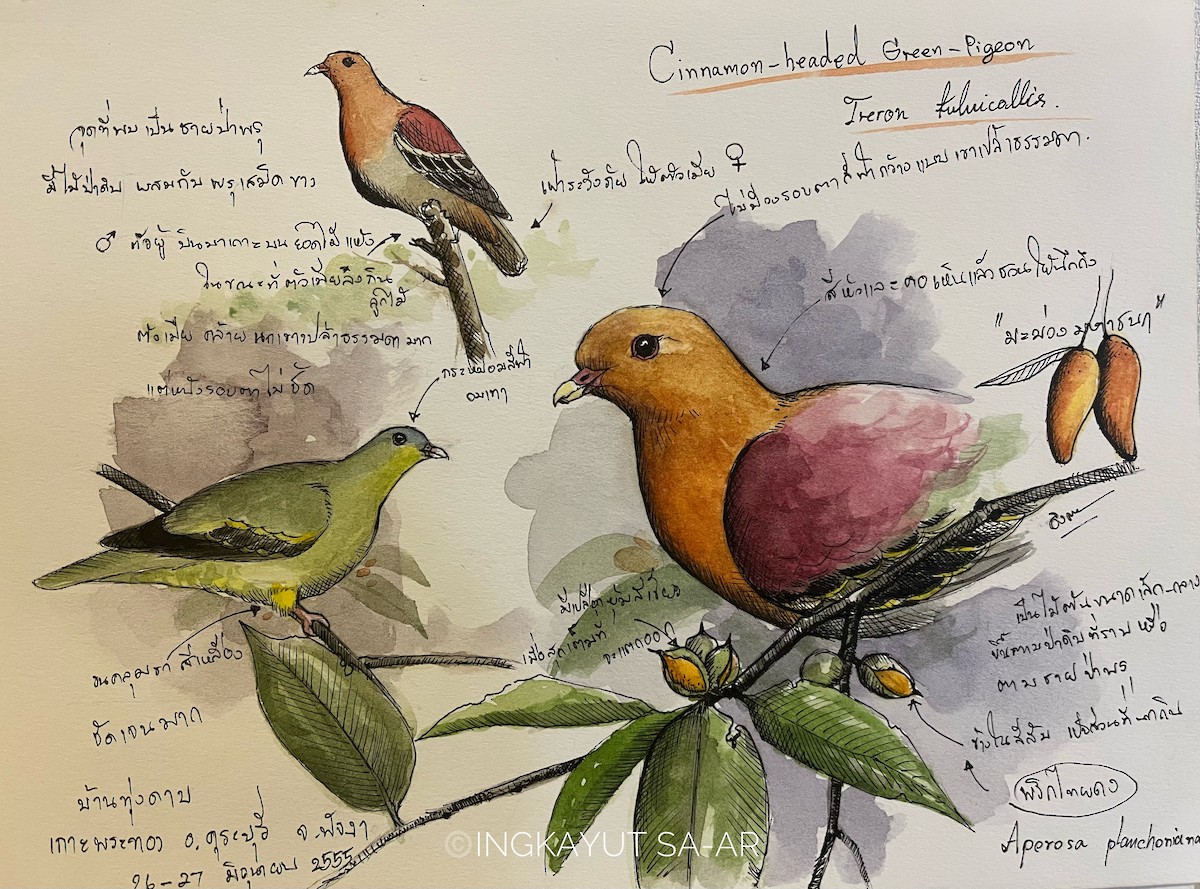 Cinnamon-headed Green-Pigeon
Treron fulvicollis.
จุดที่พบ เป็น ชายป่าพรุ
มีไม้ป่าดิบ ผสมกับ พรุเสม็ดขาว
♂ ตัวผู้ บินมาเกาะบน ยอดไม้แห้ง
ในขณะที่ ตัวเมียลงกิน
ลูกไม้
ตัวเมีย คล้าย นกเขาเปล้าธรรมดา มาก
แต่หนังรอบตาไม่ชัด
เฝ้าระวังภัย ให้ตัวเมีย ♀
ไม่มีวงรอบตา สีฟ้ากว้าง แบบ เขาเปล้าธรรมดา.
สีหัวและ คอ เห็นแล้วชวน ให้นึกถึง
"มะม่วงมหาชนก"
กระหม่อมสีฟ้า
อมเทา
ขนคลุม สีเหลือง
ชัดเจนมาก
มีเปลือกหุ้มสีเขียว
เมื่อสุกเต็มที่
จะแตกออก
เป็นไม้ต้นขนาดเล็ก-กลาง
ขึ้นตามป่าดิบที่ราบ หรือ
ตามชายป่าพรุ
ข้างในสีส้ม เป็นส่วนที่นกกิน
พริกไทยดง
Aperosa planchoniana
บ้านทุ่งดาบ
เกาะพระทอง อ.คุระบุรี จ.พังงา
26-27 มิถุนายน 2555
©INGKAYUT SA-AR